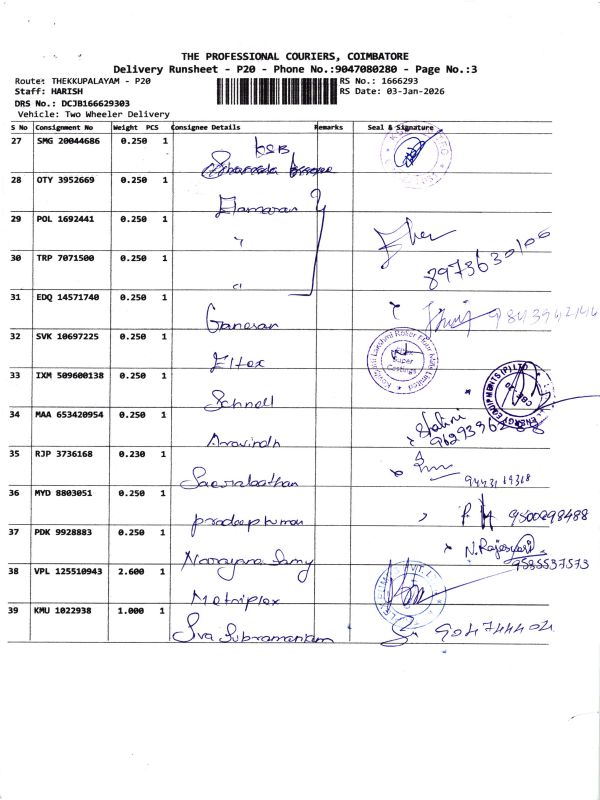 THE PROFESSIONAL COURIERS, COIMBATORE
Delivery Runsheet - P20 - Phone No.:9047080280 - Page No.:3
Route: THEKKUPALAYAM - P20 RS No.: 1666293
Staff: HARISH RS Date: 03-Jan-2026
DRS No.: DCJB166629303
Vehicle: Two Wheeler Delivery
S No Consignment No Weight PCS Consignee Details Remarks Seal & Signature
27 SMG 20044686 0.250 1 KSB
28 OTY 3952669 0.250 1 Elamaran
29 POL 1692441 0.250 1 "
30 TRP 7071500 0.250 1 " 8973630106
31 EDQ 14571740 0.250 1 Ganesan
32 SVK 10697225 0.250 1 Eltex
33 IXM 509600138 0.250 1 Schnell ENERGY EQUIPMENTS (P) LTD
34 MAA 653420954 0.250 1 Aravindh Shalini
35 RJP 3736168 0.230 1
36 MYD 8803051 0.250 1 Pradeep kumar 9500298488
37 PDK 9928883 0.250 1 Narayana Samy N. Rajeswari
9585537573
38 VPL 125510943 2.600 1 Metriplex
39 KMU 1022938 1.000 1 Siva Subramaniam